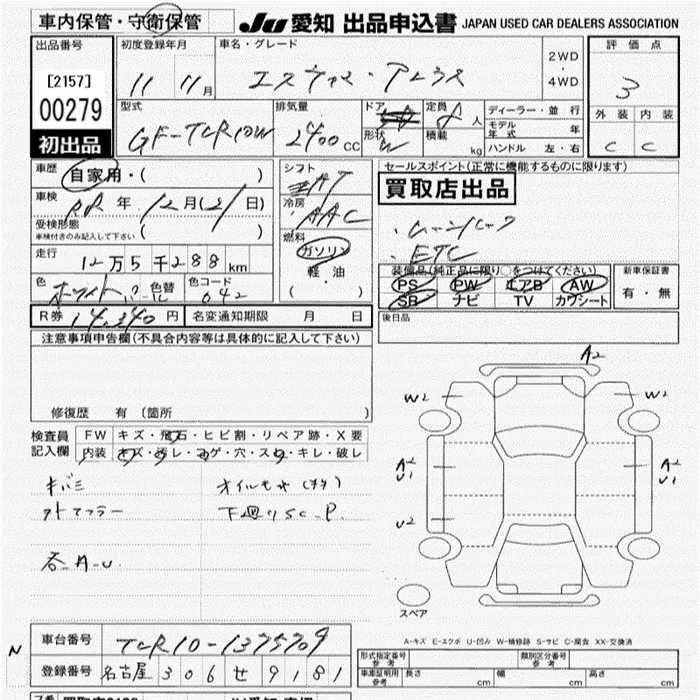 車内保管・守衛保管 JU 愛知 出品申込書 JAPAN USED CAR DEALERS ASSOCIATION
出品番号 初度登録年月 車名・グレード 2WD・4WD 評価点
[2157] 11 11月 エスティマ・アエラス 3
00279 型式 排気量 ドア形状 定員 人 積載 kg ディーラー・並行 外装 内装
初出品 GF-TCR10W 2400cc W 8 モデル年式 年 C C
ハンドル 左・右
車歴 自家用・( ) シフト セールスポイント(正常に機能するものに限ります)
車検 年 12月(21日) AT 買取店出品
受検形態 ( ) 冷房 AAC ・ムーンルーフ
車検付きのみ記入して下さい 燃料 ・ETC
走行 12万5千288km ガソリン・軽油・( ) 装備品(純正品に限り○をつけてください) 新車保証書
色 ホワイトパール 色替 色コード 042 PS PW エアB AW 有・無
SB ナビ TV カワシート
R券 14,340円 名変通知期限 月 日 後日品
注意事項申告欄(不具合内容等は具体的に記入して下さい)
修復歴 有 〔箇所 〕
検査員記入欄 FW キズ・飛石・ヒビ割・リペア跡・X要
内装 キズ・汚レ・コゲ・穴・スレ・キレ・破レ
キバミ オイルモレ
外マフラー 下廻りSC.P.
各-A-U
A2
W2 W2
A2 U1 A2 U1
U2
スペア
A-キズ E-エクボ U-凹み W-補修跡 S-サビ C-腐食 XX-交換済
N 車台番号 TCR10-1375709
登録番号 名古屋 306 せ 9181
形式指定番号 参考 類別区分番号 参考
車庫証明用 参考 長さ cm 幅 cm 高さ cm